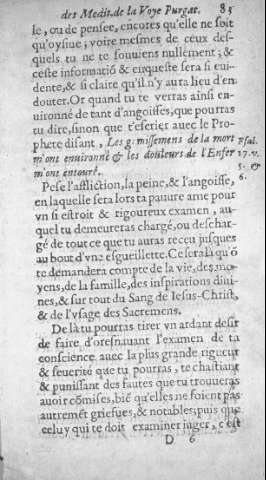 des Medit. de la Voye Purgat. 85
le, ou de pensee, encores qu'elle ne soit
qu'oysiue; voire mesmes de ceux des-
quels tu ne te souuiens nullement; &
ceste informatiõ & enqueste sera si eui-
dente, & si claire qu'il n'y aura lieu d'en
douter. Or quand tu te verras ainsi en-
uironné de tant d'angoisses, que pourras
tu dire, sinon que t'escrier auec le Pro-
phete disant, Les gemissemens de la mort
m'ont enuironné & les douleurs de l'Enfer
m'ont entouré.
Psal.
17. v.
5. &
6.
Pese l'affliction, la peine, & l'angoisse,
en laquelle sera lors ta pauure ame pour
vn si estroit & rigoureux examen, au-
quel tu demeureras chargé, ou deschar-
gé de tout ce que tu auras receu jusques
au bout d'vne esgueillette. Ce sera là qu'õ
te demandera compte de la vie, des mo-
yens, de la famille, des inspirations diui-
nes, & sur tout du Sang de Iesus-Christ,
& de l'vsage des Sacremens.
De là tu pourras tirer vn ardant desir
de faire d'oresnauant l'examen de ta
conscience auec la plus grande rigueur
& seuerité que tu pourras, te chastiant
& punissant des fautes que tu trouueras
auoir cõmises, biẽ qu'elles ne soient pas
autremẽt griefues, & notables; puis que
celuy qui te doit examiner iuger, c'est
D 6